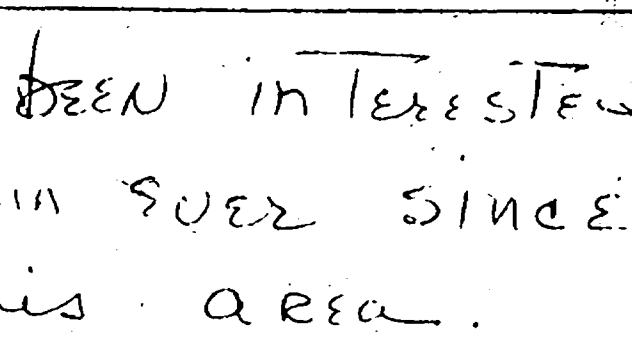 been interested
in ever since
is area.